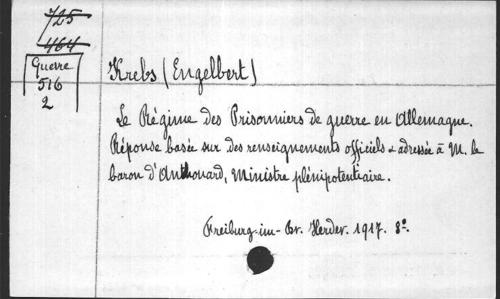 725
464
Guerre
516
2
Krebs (Engelbert)
Le Régime des Prisonniers de guerre en Allemagne.
Réponse basée sur des renseignements officiels & adressée à M. le
baron d'Anthouard, Ministre plénipotentiaire.
Freiburg-im-Br. Herder. 1917. 8º.